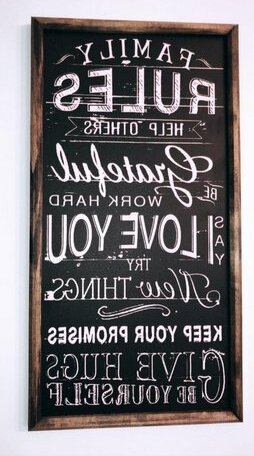 FAMILY
RULES
HELP OTHERS
BE Grateful
WORK HARD
SAY I LOVE YOU
TRY
New THINGS
KEEP YOUR PROMISES
GIVE HUGS
BE YOURSELF